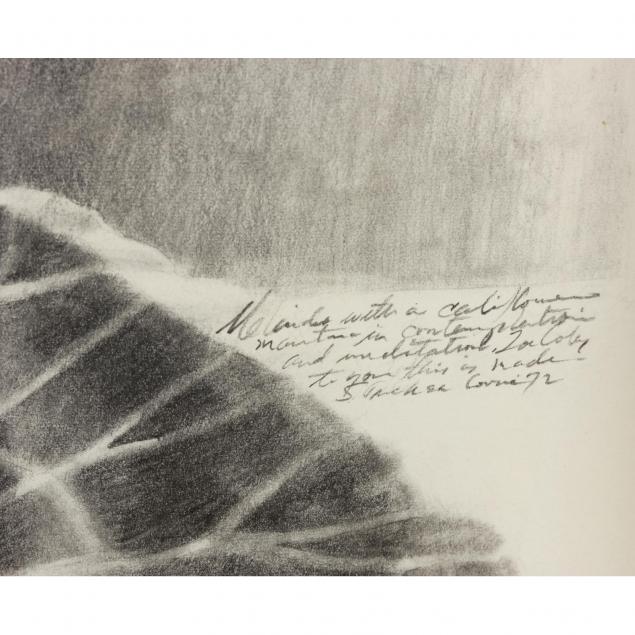 Melinda with a California
mountain in contemplation
and meditation
to you this is made
72